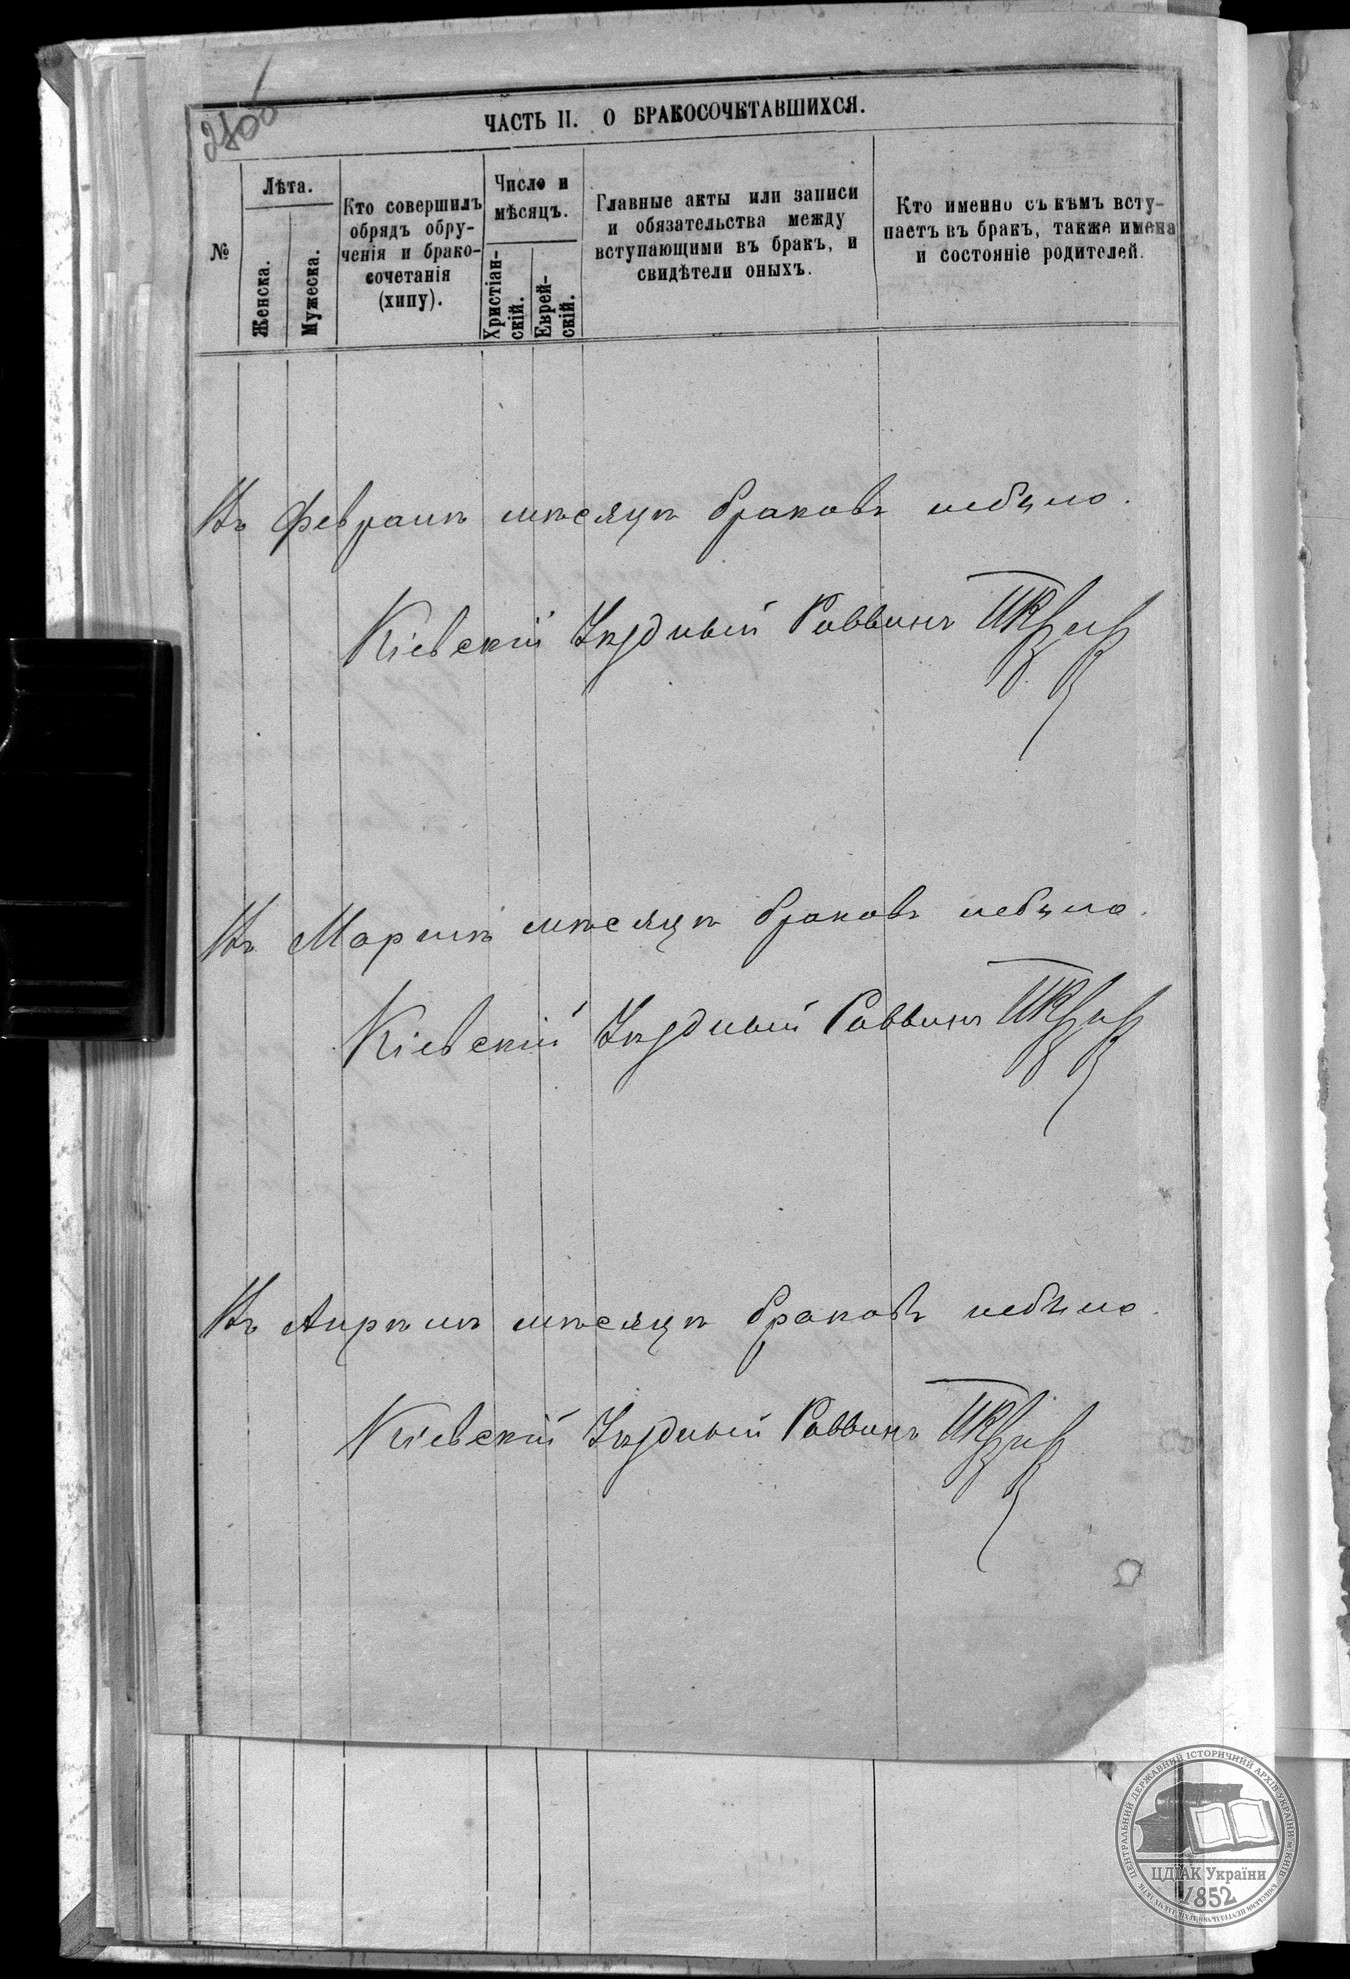 ЧАСТЬ II. О БРАКОСОЧЕТАВШИХСЯ.
№
Лѣта.
Женска.
Мужеска.
Кто совершилъ
обрядъ обру-
ченія и брако-
сочетанія
(хипу).
Число и
мѣсяцъ.
Христіан-
скій.
Еврей-
скій.
Главные акты или записи
и обязательства между
вступающими въ бракъ, и
свидѣтели оныхъ.
Кто именно съ кѣмъ всту-
паетъ въ бракъ, также имена
и состояніе родителей.
Въ Февралѣ мѣсяцѣ браковъ небыло.
Кіевскій Уѣздный Раввинъ
Въ Мартѣ мѣсяцѣ браковъ небыло.
Кіевскій Уѣздный Раввинъ
Въ Апрѣлѣ мѣсяцѣ браковъ небыло.
Кіевскій Уѣздный Раввинъ
ЦЕНТРАЛЬНИЙ ДЕРЖАВНИЙ ІСТОРИЧНИЙ АРХІВ УКРАЇНИ м. КИЇВ
ЦДІАК України
1852